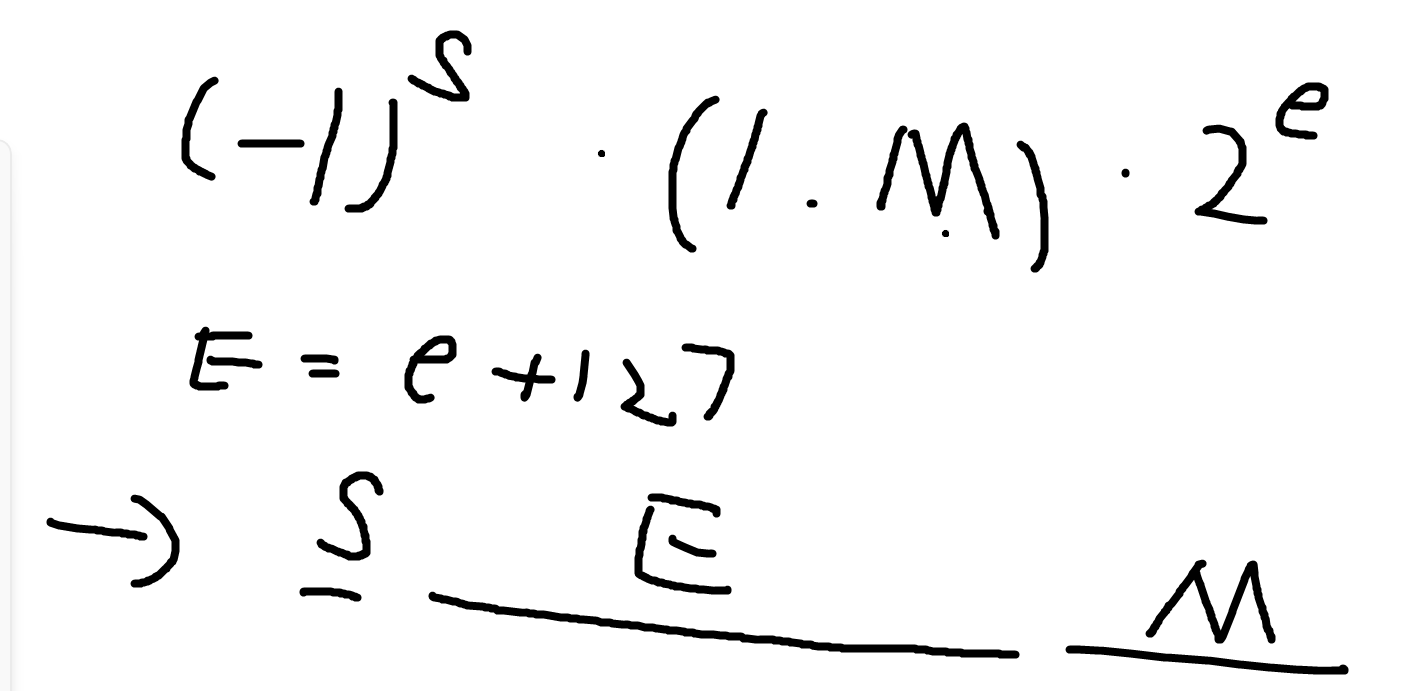 (-1)^S · (1.M) · 2^e
E = e + 127
→ S E M